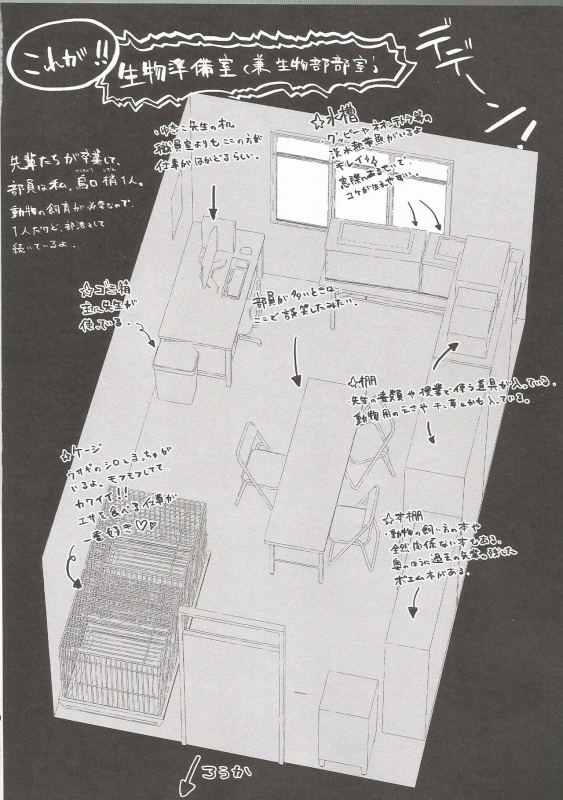 これが!!
生物準備室(兼生物部部室)
デデーン!
先輩たちが卒業して、
部員は私、鳥口 梢1人。
動物の飼育が必要なので、
1人だけど、部活として
続いているよ。
・ゆきこ先生の机。
職員室よりもここの方が
仕事がはかどるらしい。
☆水槽
・グッピーやネオンテトラ等の
淡水熱帯魚がいるよ
キレイ
窓際にあるせいで、
コケが生えやすい。
☆ゴミ箱
主に先生が
使っている。
部員が多いときは、
ここで談笑してみたい。
☆棚
・先生の書類や授業で使う道具が入っている。
動物用のえさや干し草とかも入っている。
☆ケージ
ウサギのシロとまっちゃが
いるよ。モフモフしてて
カワイイ!!
エサを食べる仕草が
一番好き♡♡
☆本棚
・動物の飼い方の本や
全然関係ない本もある。
奥のほうに過去の先輩の残した
ポエム本がある。
ろうか